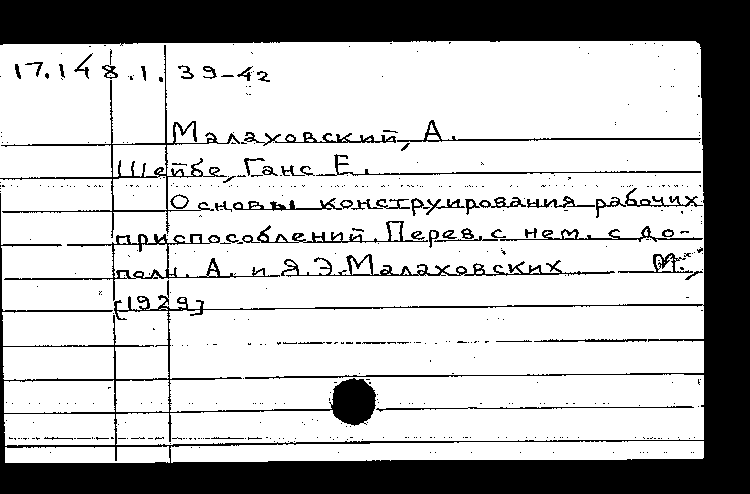 17.148.1. 39-42
Малаховский, А.
Шейбе, Ганс Е.
Основы конструирования рабочих
приспособлений. Перев. с нем. с до-
полн. А. и Я.Э.Малаховских М.,
[1929]